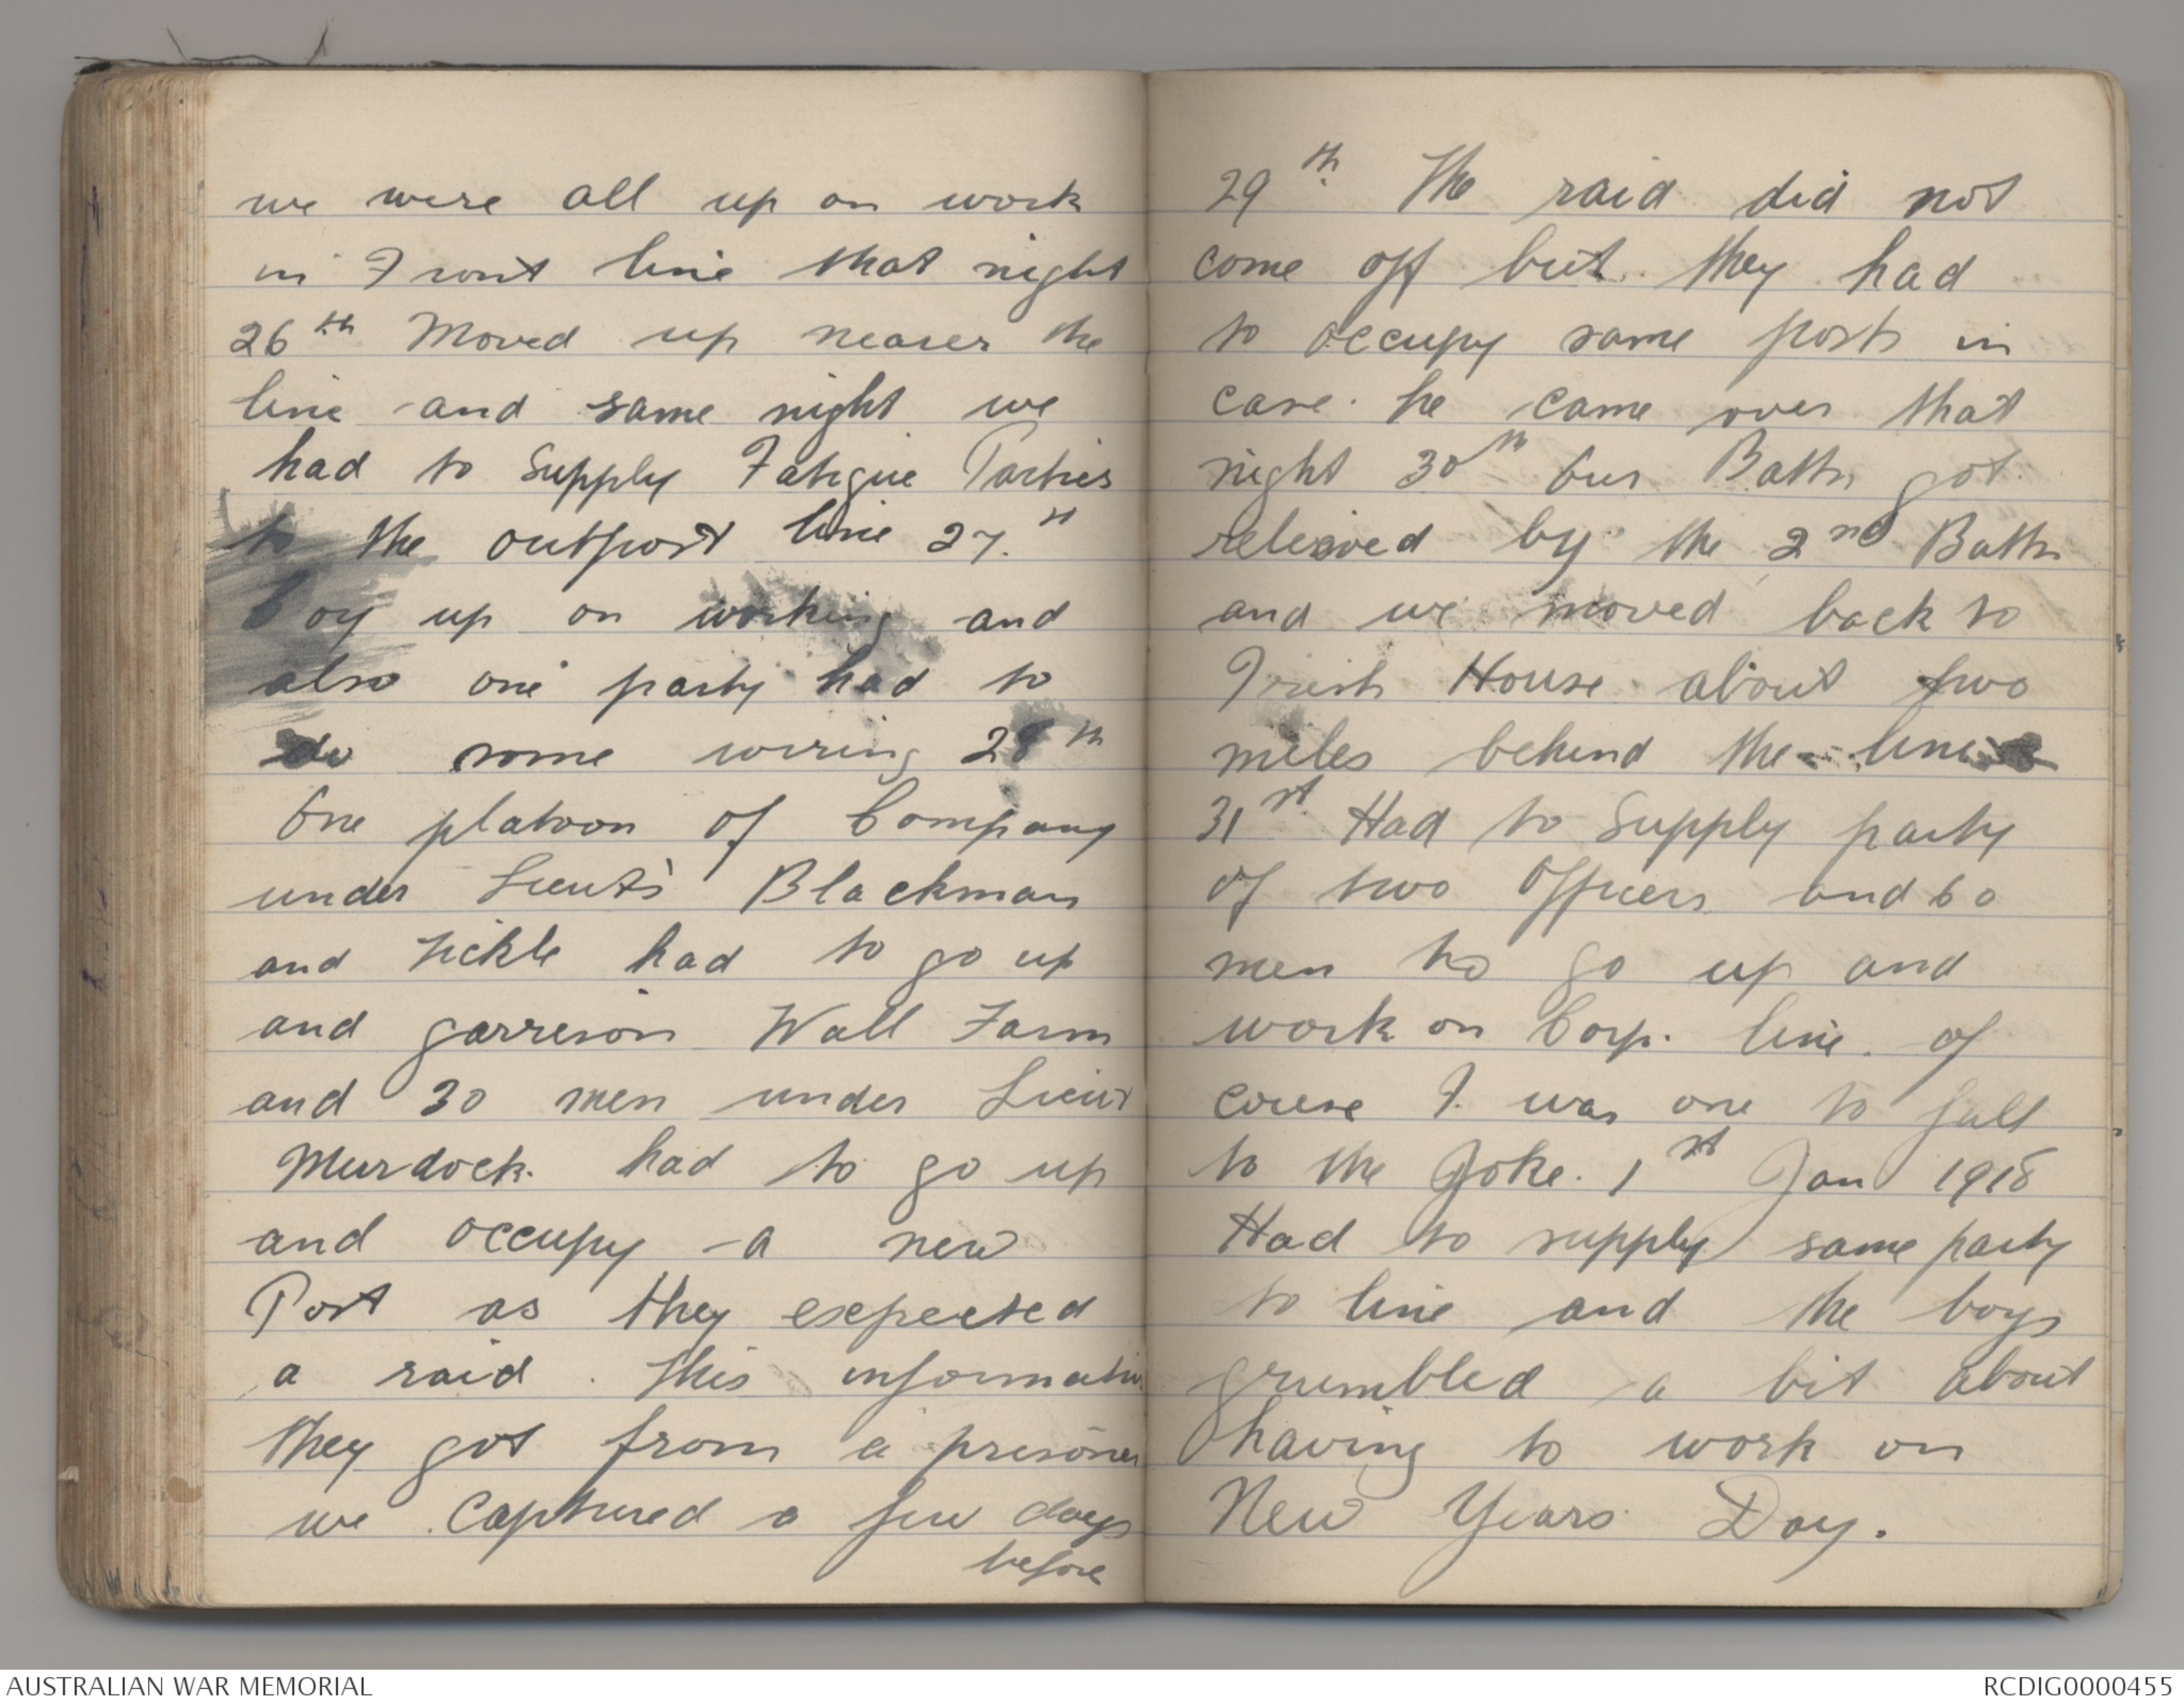 we were all up on work
in Front line that night
26th Moved up nearer the
line and same night we
had to Supply Fatigue Parties
to the outpost line 27.th
Coy up on working and
also one party had to
do some wiring 28th
One platoon of Company
under Lieuts Blackman
and Tickle had to go up
and garreson Wall Farm
and 30 men under Lieut
Murdock. had to go up
and occupy a new
Post as they expected
a raid. This informatin
they got from a prisoner
we captured a few days
before
29th. The raid did not
come off but they had
to occupy same posts in
case he came over that
night 30th Our Battn got
releived by the 2nd Battn
and we moved back to
Irish House about two
miles behind the line
31st Had to Supply party
of two Officers and 60
men to go up and
work on Corp. line. of
course I was one to fall
to the Joke. 1st Jan 1918
Had to supply same party
to line and the boys
grumbled a bit about
having to work on
New Years Day.
AUSTRALIAN WAR MEMORIAL
RCDIG0000455